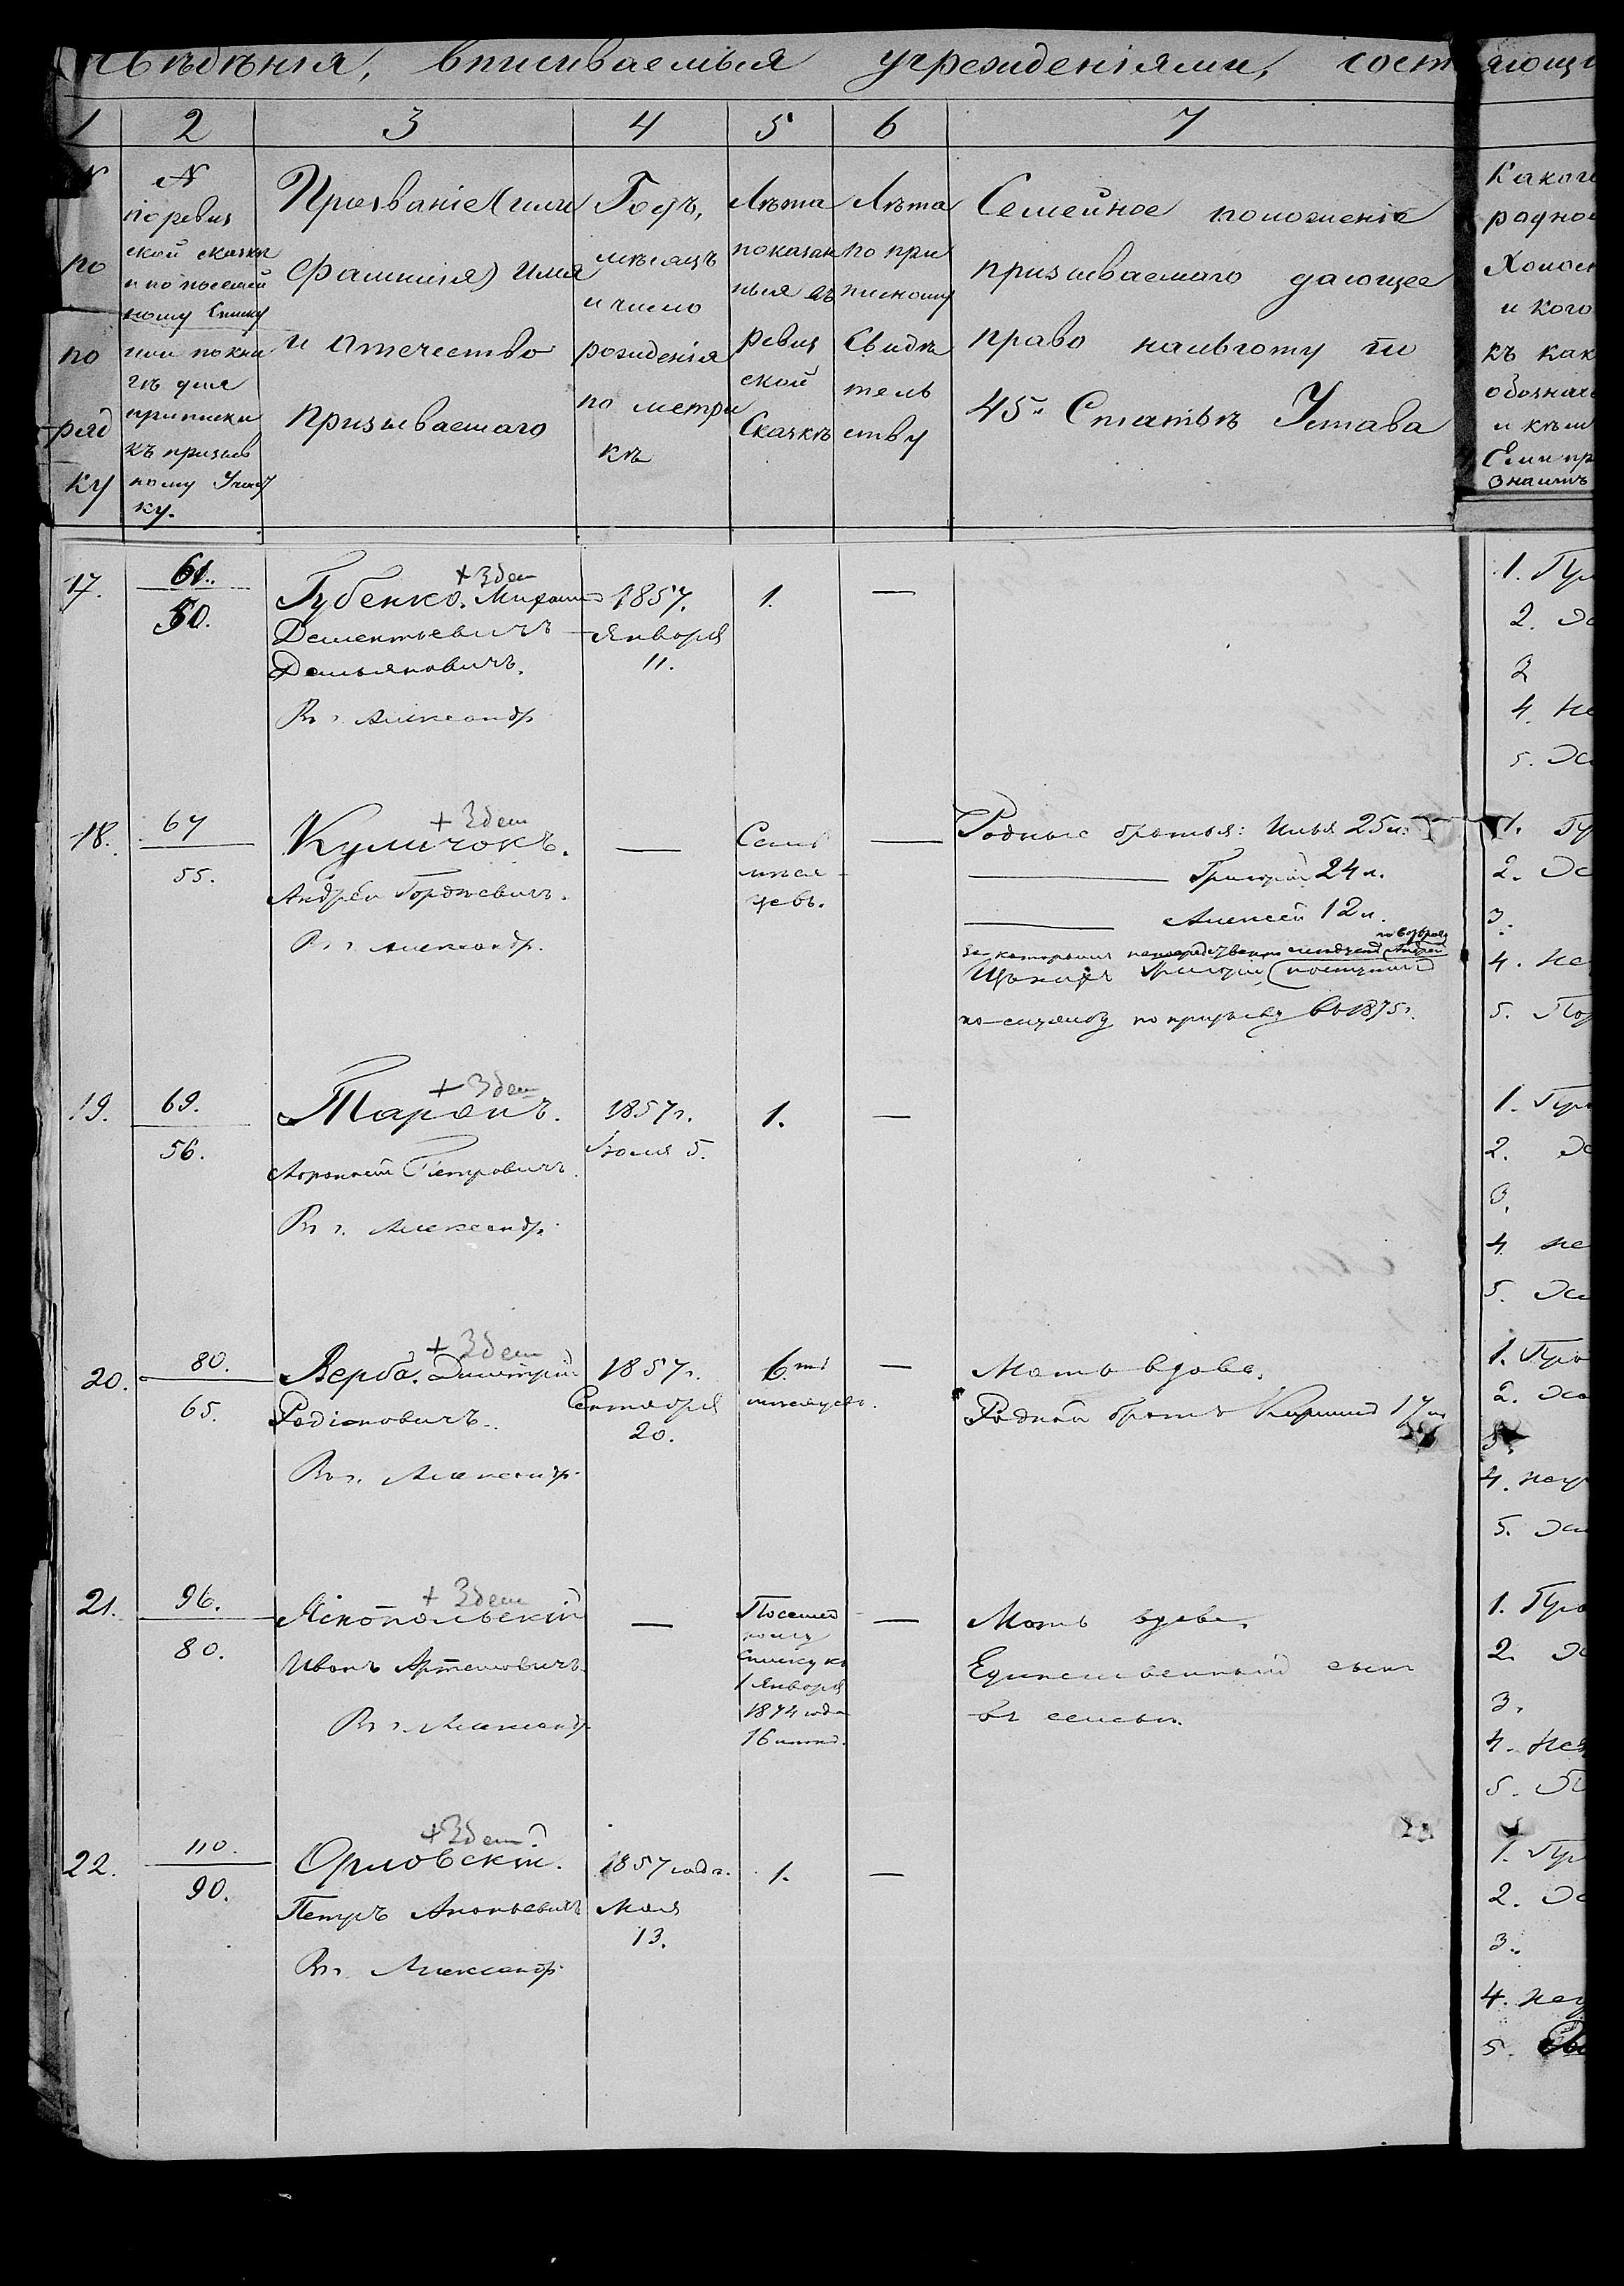 Свѣдѣнія, вписываемыя учрежденіями, сост ляющи
1 2 3 4 5 6 7
№ по по ряд ку
№
по ревиз
ской сказкѣ
и по посемей
ному списку
или по кни
гѣ для
приписки
къ призыв
ному участ
ку.
Прозваніе (или
фамилія) имя
и отечество
призываемаго
Годъ,
мѣсяцъ
и число
рожденія
по метри
кѣ
Лѣта
показан
ныя въ
ревиз
ской
Сказкѣ
Лѣта
по при
писному
Свидѣ
тель
ству
Семейное положеніе
призываемаго дающее
право на льготу по
45й Статьѣ Устава
Каког
родно
Холост
и кого
къ как
обознач
и кѣм
Если пр
значитъ
17.
61.
50.
+ 3 дек
Губенко. Михаилъ
Дементьевичъ
Демьяновичъ.
Александр
1857.
Января
11.
1.
—
1. Пр
2.
3
4. не
5.
18.
67
55.
+ 3 дек
Куличокъ.
Андрей Гордѣевичъ.
Александр.
—
Семь
мѣся
цевъ.
—
Родные братья: Илья 25 л.
Григорій 24 л.
Алексей 12 л.
по возрасту
за которымъ непосредственно слѣдуетъ Андрей
Григорій поступилъ
по призыву въ 1875 г.
1.
2.
3.
4. не
5.
19.
69.
56.
+ 3 дек
Таранъ.
Петровичъ.
Александр.
1857 г.
Іюля 5.
1.
—
1. Пр
2.
3.
4 не
5.
20.
80.
65.
+ 3 дек
Верба. Димитрій
Родіоновичъ.
Александр.
1857 г.
Сентября
20.
6ть
мѣсяцев.
—
Мать вдова.
Родной братъ Кирилъ 17 л.
1. Пра
2.
3.
4. негр
5.
21.
96.
80.
+ 3 дек
Яснопольскій
Иванъ Артемовичъ.
Александр.
—
Посемей
ному
списку къ
1 Января
1874 года
16 лѣтъ.
—
Мать вдова.
Единственный сынъ
въ семьѣ.
1. Пра
2.
3.
4. не
5.
22.
110.
90.
+ 3 дек
Орловскій.
Петръ Ананьевичъ
Александр.
1857 года.
Мая
13.
1.
—
1. Пр
2.
3.
4. нег
5.